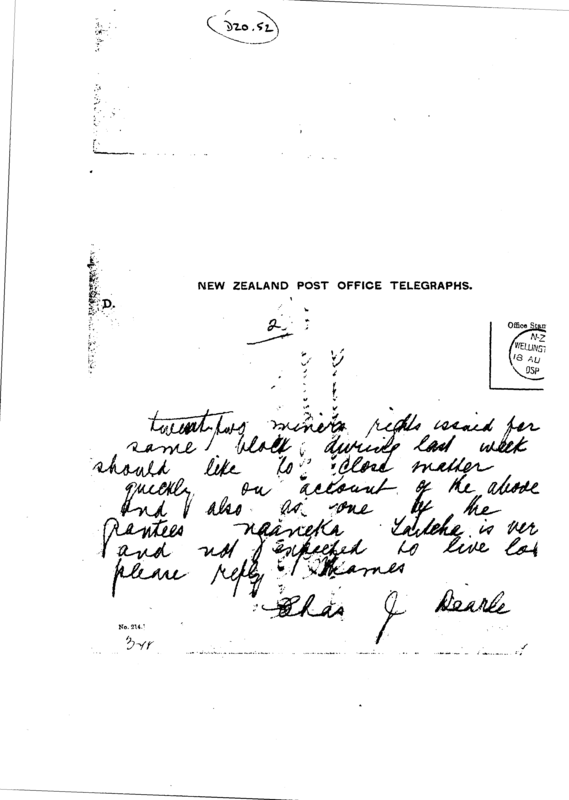 D20.52
NEW ZEALAND POST OFFICE TELEGRAPHS.
D.
2
Office Stam
N-Z
WELLINGT
18 AU
OSP
twenty two miners rights issued for
same block during last week
should like to close matter
quickly on account of the above
and also as one of the
grantees is ver
and not expected to live lo
please reply Thames
Chas J Dearle
No. 214.